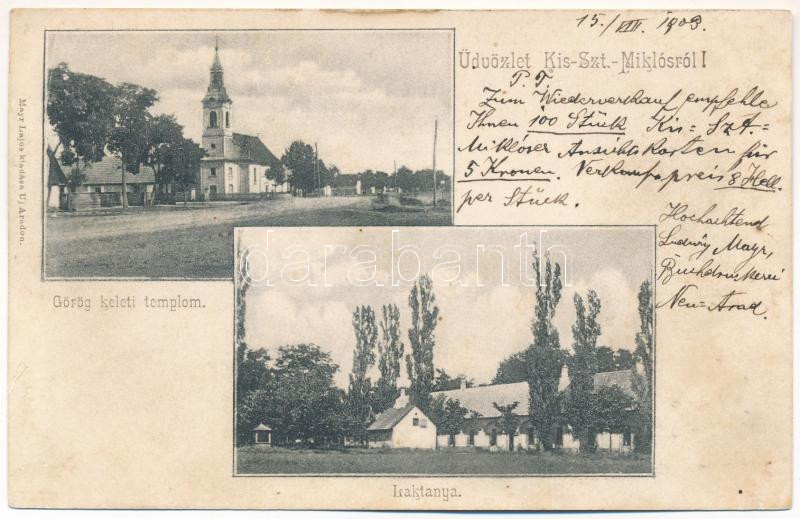 15./VIII. 1903.
Üdvözlet Kis-Szt.-Miklósról!
P. T.
Zum Wiederverkauf empfehle
Ihnen 100 Stück Kis=Szt.=
Miklóser Ansichtskarten für
5 Kronen. Verkaufspreis 8 Hell.
per Stück.
Hochachtend
Ludwig Mayr,
Buchdruckerei
Neu=Arad.
Mayr Lajos kiadása Uj Aradon.
Görög keleti templom.
darabanth.com
Laktanya.